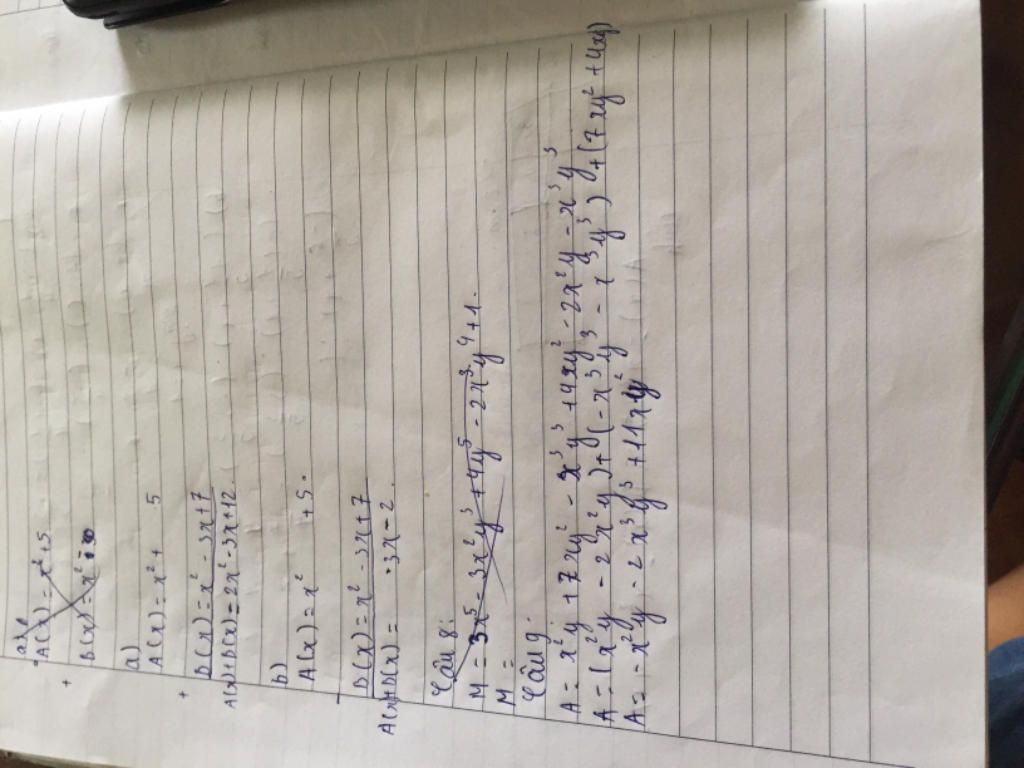 A(x) = x² + 5
B(x) = x²
a)
A(x) = x² + 5
+
B(x) = x² - 3x + 7
A(x) + B(x) = 2x² - 3x + 12.
b)
A(x) = x² + 5.
-
B(x) = x² - 3x + 7
A(x) + B(x) = 3x - 2.
Câu 8:
M = 3x⁵ - 3x²y³ + 4y⁵ - 2x³y⁴ + 1.
M =
Câu 9.
A = x²y + 7xy² - x³y³ + 4xy² - 2x²y - x³y³
A = (x²y - 2x²y) + (-x³y³ - x³y³) + (7xy² + 4xy)
A = -x²y - 2x³y³ + 11xy²